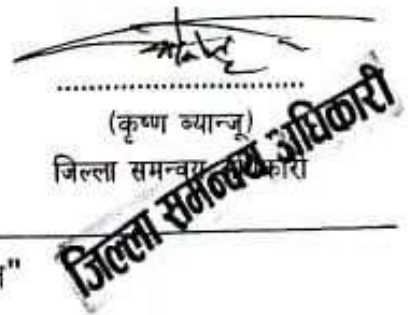 (कृष्ण ब्यान्जू)
जिल्ला समन्वय अधिकारी
जिल्ला समन्वय अधिकारी
"